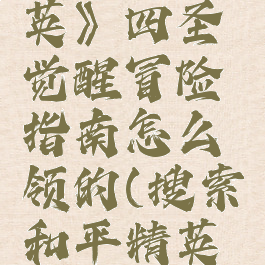 英》四圣
觉醒冒险
指南怎么
领的(搜索
和平精英